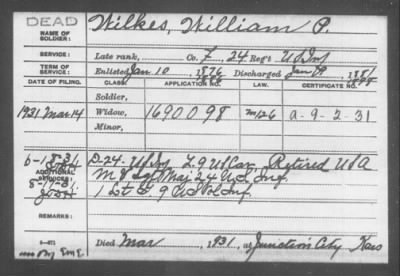 DEAD
NAME OF SOLDIER: Wilkes, William P.
SERVICE: Late rank, Co. F, 24 Reg't U S Inf
TERM OF SERVICE: Enlisted Jan 10, 1876 Discharged Jan 9, 1881
DATE OF FILING. CLASS. APPLICATION NO. LAW. CERTIFICATE NO.
Soldier,
1931 Mar 14 Widow, 1690098 m126 a-9-2-31
Minor,
6-18-31 D-24-U S Inf, L. 9 U S Cav, Retired U S A
ADDITIONAL SERVICES: 24 U.S. Inf
8-19-31
1 Lt 9 U S Inf
REMARKS:
3-671
Died Mar, 1931, at Junction City Kans